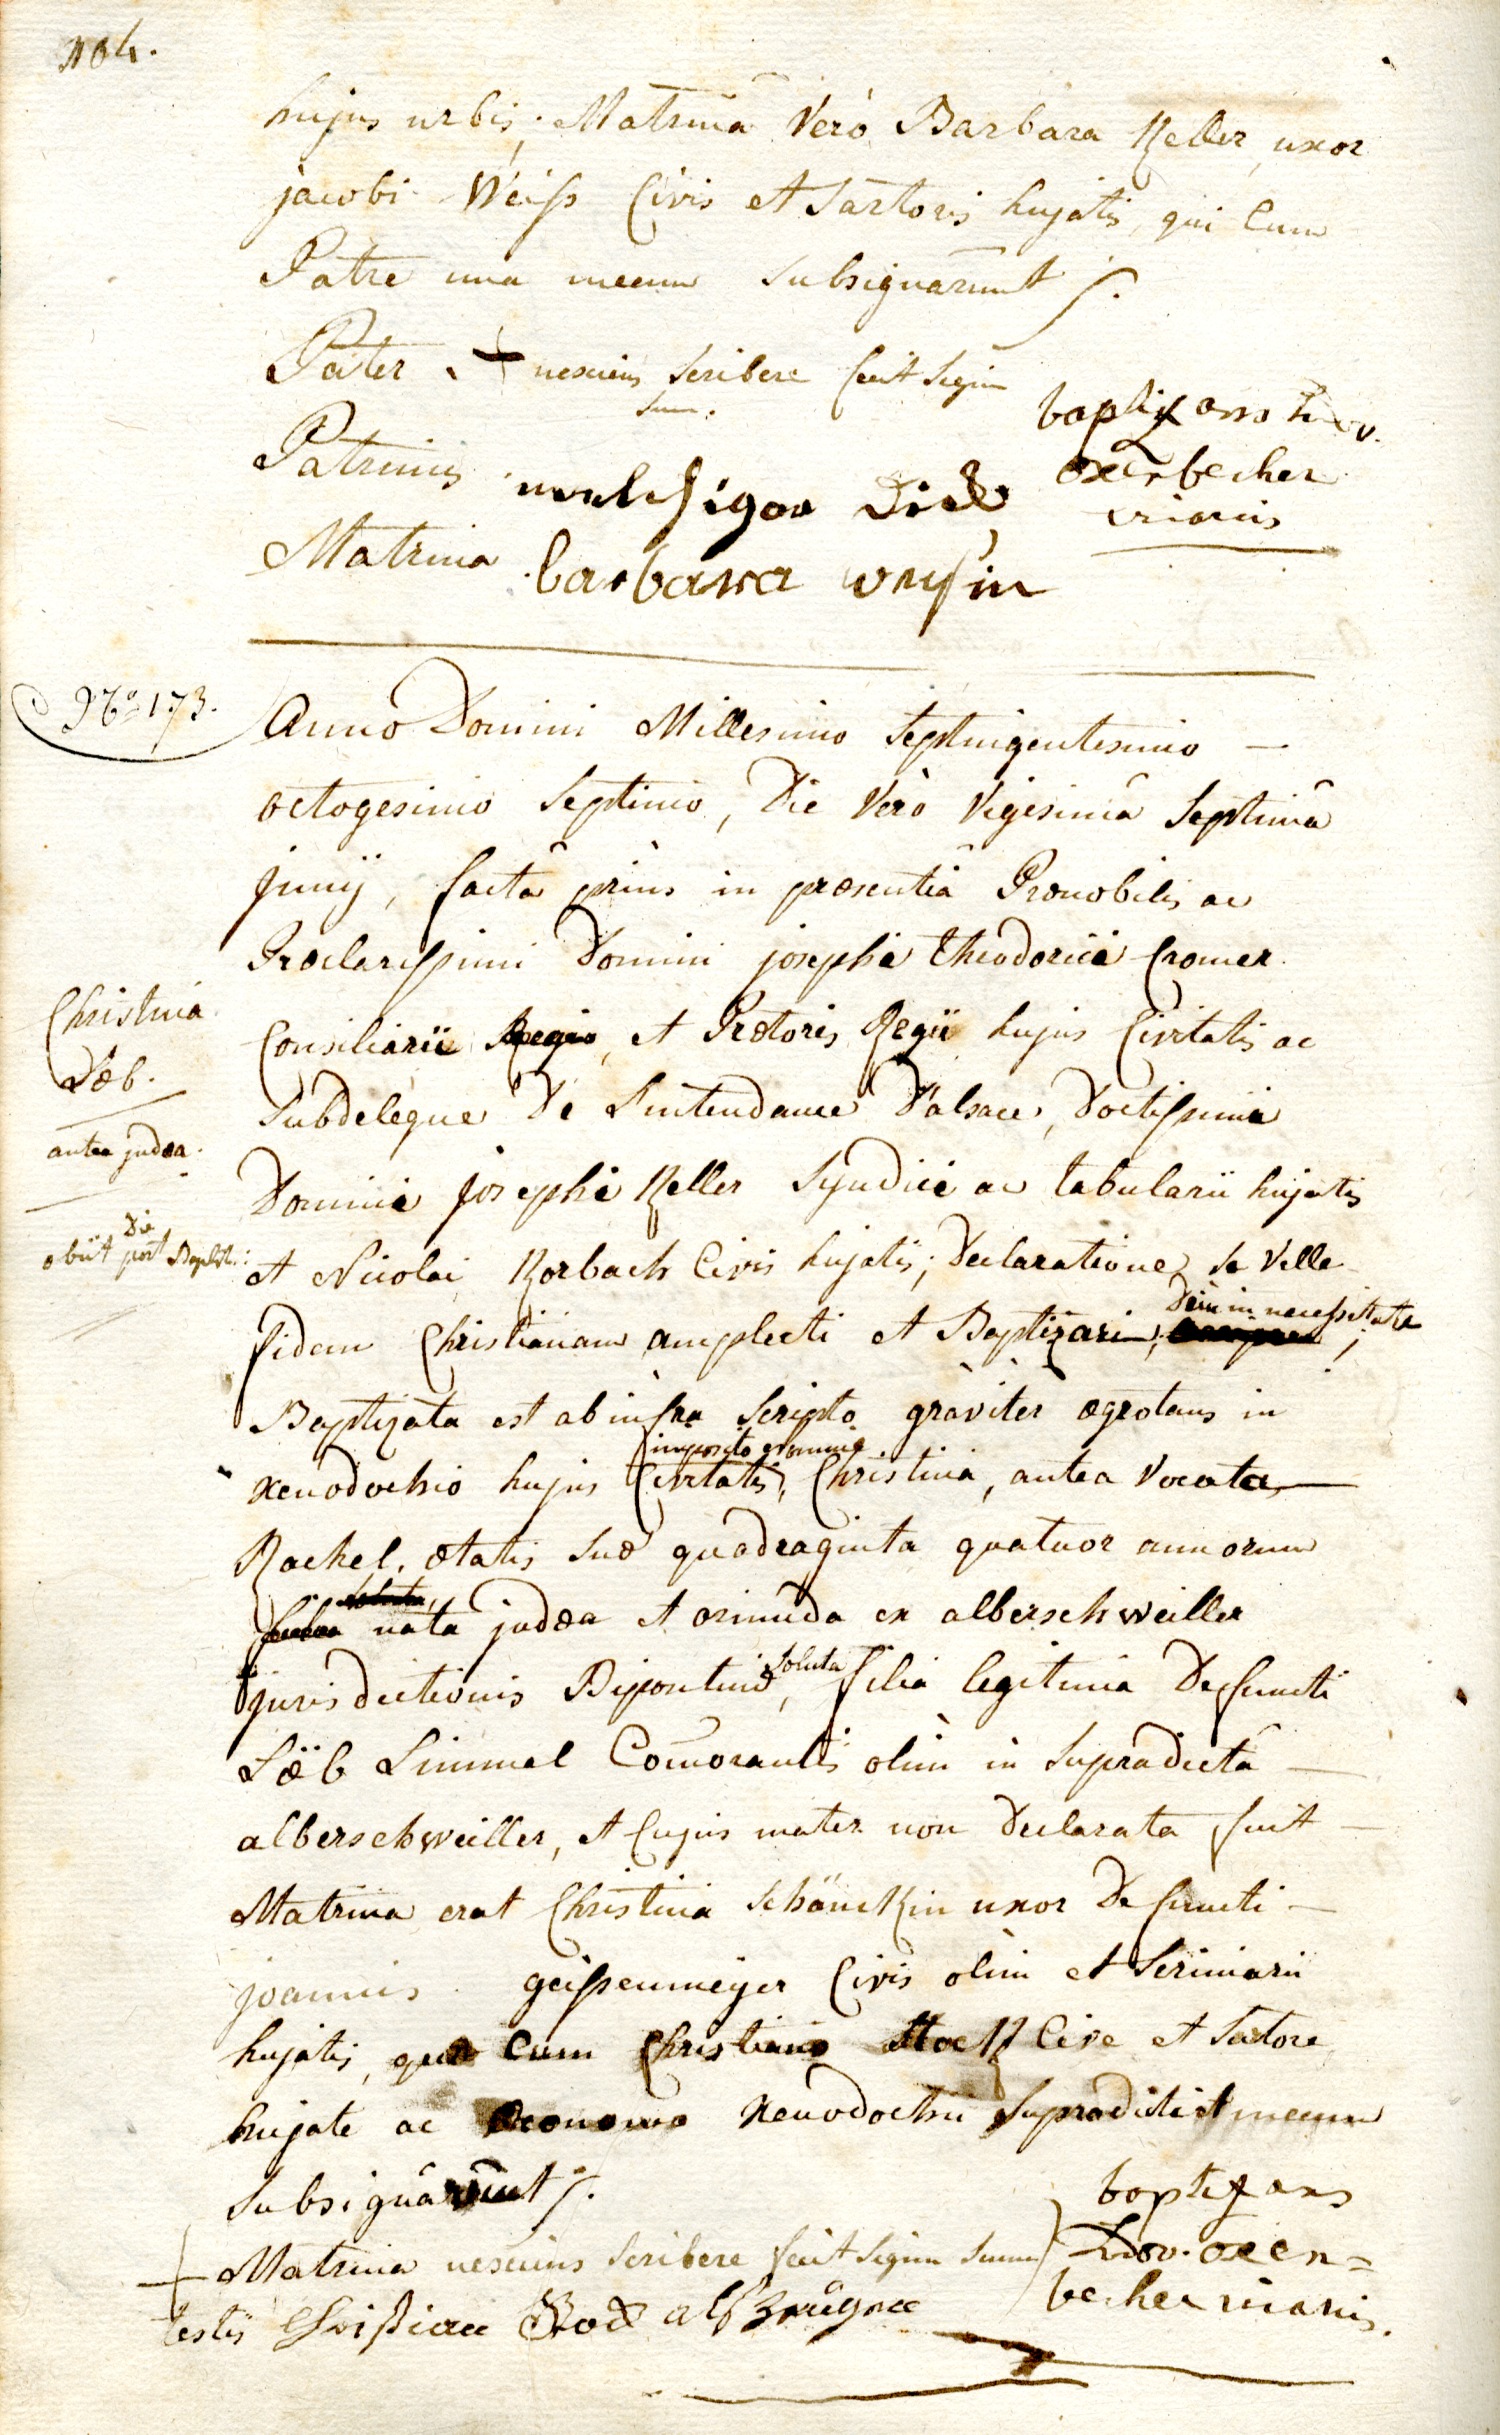 104.
hujus urbis; Matrina Verò Barbara Keller uxor
jacobi Weiss Civis et Sartoris hujatis, qui Cum
Patre una mecum Subsignarunt ∫.
Pater + nesciens Scribere fecit Signum
Suum.
Patrinus Dick
Matrina barbara
baptizans
oxenbecher
vicarius
No 173.
Anno Domini Millesimo Septingentesimo —
octogesimo Septimo, Die Verò Vigesimâ Septimâ
junij, factâ priùs in præsentiâ Prænobilis ac
Præclarissimi Domini josephi theodorici Cromer
Consiliarii Regii, et Prætoris Regii hujus Civitatis ac
Subdelegue De L'intendance D'alsace, Doctissimi
Domini josephi Keller Syndici ac tabularii hujatis
et Nicolai Korbach Civis hujatis; Declaratione, se Velle
Dein in necessitate
fidem Christianam amplecti et Baptizari, ;
Baptizata est ab infra Scripto graviter ægrotans in
imposito nomine
xenodochio hujus Civitatis, Christina, antea Vocata —
Rachel, ætatis suæ quadraginta quatuor annorum
soluta,
nata judæa et oriunda ex alberschweiller
soluta
jurisdictionis Bipontinæ, filia legitima Defuncti
Löeb Limmel Com̄orantis olim in Supradictâ —
alberschweiller, et Cujus mater non Declarata fuit —
Matrina erat Christina Schänckin uxor Defuncti —
joannis geissenmeyer Civis olim et Scriniarii
hujatis, quæ Cum Christiano Hock Cive et Sartore
hujate ac œconomo Xenodochii Supradicti et mecum
Subsignârunt ∫.
+ Matrina nesciens Scribere fecit Signum Suum
testis Christian als Zeüge
baptizans
Ludov. oxen=
becher vicarius.
Christina
Læb.
antea judæa.
Die
obiit post Baptis: